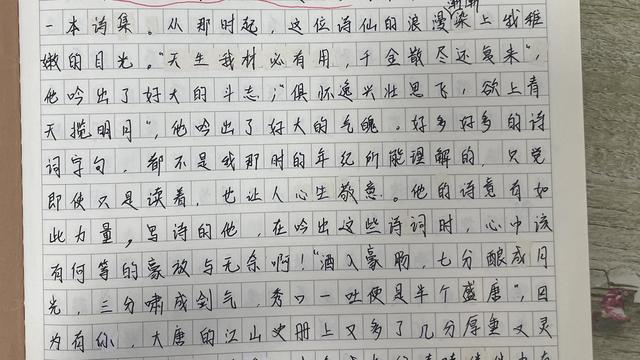 渐渐
一本诗集。从那时起，这位诗仙的浪漫染上我稚
嫩的目光。"天生我材必有用，千金散尽还复来"，
他吟出了好大的斗志；"俱怀逸兴壮思飞，欲上青
天揽明月"，他吟出了好大的气魄。好多好多的诗
词字句，都不是我那时的年纪所能理解的，只觉
即使只是读着，也让人心生敬意。他的诗竟有如
此力量，写诗的他，在吟出这些诗词时，心中该
有何等的豪放与无奈啊！"酒入豪肠，七分酿成月
光，三分啸成剑气，秀口一吐便是半个盛唐"，因
为有你，大唐的江山史册上又多了几分厚重又灵